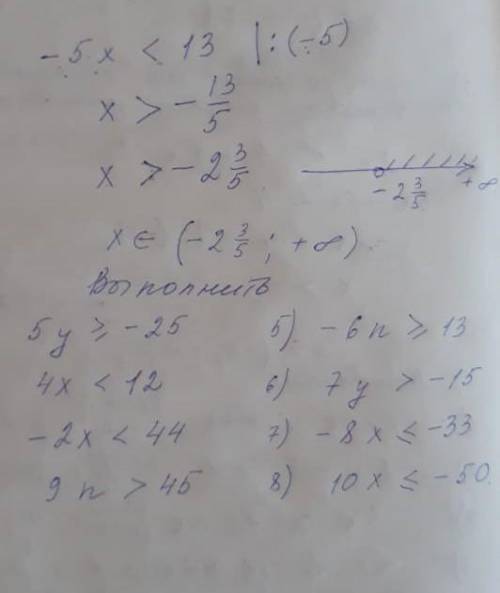 -5x < 13 |:(-5)
x > -13/5
x > -2 3/5
-2 3/5 +∞
x ∈ (-2 3/5; +∞)
Выполнить
5y ≥ -25 5) -6n ≥ 13
4x < 12 6) 7y > -15
-2x < 44 7) -8x ≤ -33
9n > 45 8) 10x ≤ -50